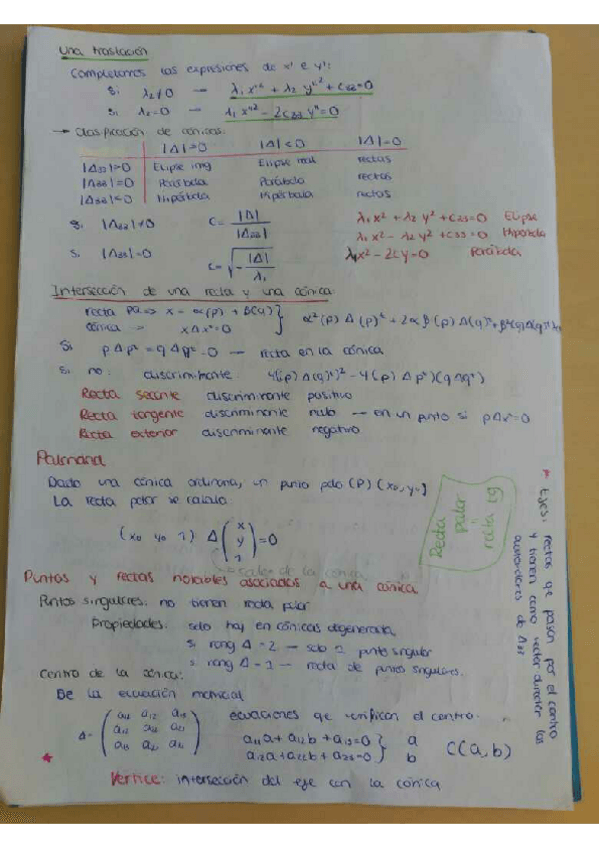 Una traslación
Completamos las expresiones de x' e y':
Si λ₂≠0 → λ₁x''² + λ₂y''² + c₃₃=0
Si λ₂=0 → λ₁x''² - 2c₂₃y''=0
→ Clasificación de cónicas:
|Δ|>0 |Δ|<0 |Δ|=0
|Δ₃₃|>0 Elipse img Elipse real rectas
|Δ₃₃|=0 Parábola Parábola rectas
|Δ₃₃|<0 Hipérbola Hipérbola rectas
Si |Δ₃₃|≠0 c = |Δ| / |Δ₃₃|
Si |Δ₃₃|=0 c = √(-|Δ| / λ₁)
λ₁x² + λ₂y² + c₃₃=0 Elipse
λ₁x² - λ₂y² + c₃₃=0 Hipérbola
λ₁x² - 2cy=0 Parábola
Intersección de una recta y una cónica:
recta pq ⇒ x = α(p) + β(q) }
cónica → xΔxᵗ=0
Si pΔpᵗ = qΔqᵗ = 0 — recta en la cónica
Si no: discriminante
Recta secante discriminante positivo
Recta tangente discriminante nulo — en un punto si pΔxᵗ=0
Recta exterior discriminante negativo
Dado una cónica ordinaria, un punto polo (P) (x₀, y₀)
La recta polar se calcula:
(x₀ y₀ 1) Δ (x y 1) = 0
Recta
polar
=
recta tg
* Ejes: rectas qe pasan por el centro
y tienen como vector director los
autovectores de Δ₃₃
Puntos y rectas notables asociados a una cónica
Puntos singulares: no tienen recta polar
Propiedades: solo hay en cónicas degeneradas
si rang Δ = 2 — solo 1 punto singular
si rang Δ = 1 — recta de puntos singulares.
Centro de la cónica:
De la ecuación matricial
Δ= ecuaciones qe verifican el centro.
a₁₁a + a₁₂b + a₁₃=0 } a
a₁₂a + a₂₂b + a₂₃=0 } b C(a,b)
* Vértice: intersección del eje con la cónica